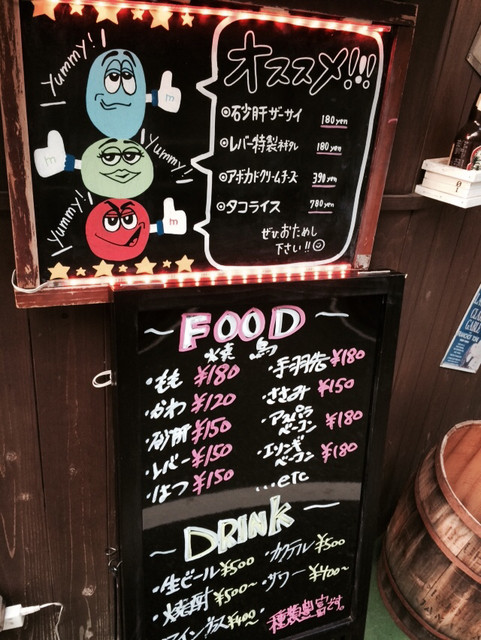 yummy!
m
m
yummy!
yummy!
m
オススメ!!!
◎砂肝ザーサイ 180yen
◎レバー特製ネギダレ 180yen
◎アボカドクリームチーズ 390yen
◎タコライス 780yen
ぜひおためし
下さい!!
~FOOD~
焼鳥
・もも ¥180 ・手羽先 ¥180
・かわ ¥120 ・ささみ ¥150
・砂肝 ¥150 ・アスパラベーコン ¥180
・レバー ¥150 ・エリンギベーコン ¥180
・はつ ¥150 ...etc
~DRINK~
・生ビール ¥500 ・カクテル ¥500
・焼酎 ¥500~ ・サワー ¥400~
・ワイングラス ¥400~ 種類豊富です。